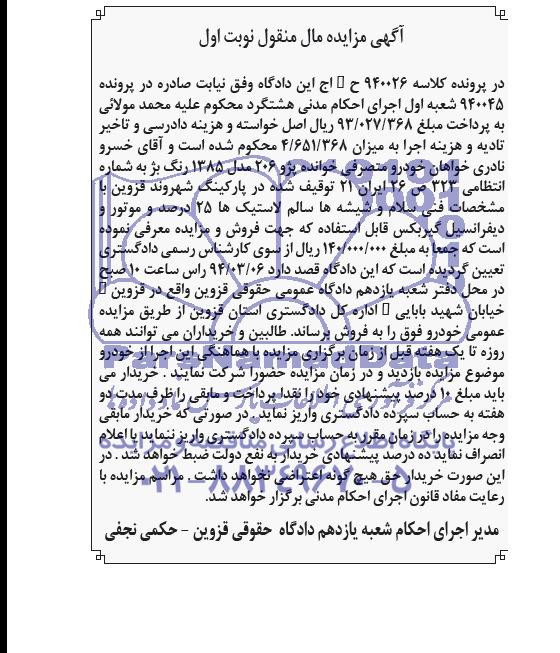 آگهی مزایده مال منقول نوبت اول
در پرونده کلاسه ۹۴۰۰۲۶ ح اج این دادگاه وفق نیابت صادره در پرونده
۹۴۰۰۴۵ شعبه اول اجرای احکام مدنی هشتگرد محکوم علیه محمد مولائی
به پرداخت مبلغ ۹۳/۰۲۷/۳۶۸ ریال اصل خواسته و هزینه دادرسی و تاخیر
تادیه و هزینه اجرا به میزان ۴/۶۵۱/۳۶۸ محکوم شده است و آقای خسرو
نادری خواهان خودرو متصرفی خوانده پژو ۲۰۶ مدل ۱۳۸۵ رنگ بژ به شماره
انتظامی ۳۲۳ ص ۲۶ ایران ۲۱ توقیف شده در پارکینگ شهروند قزوین با
مشخصات فنی سلام و شیشه ها سالم لاستیک ها ۲۵ درصد و موتور و
دیفرانسیل گیربکس قابل استفاده که جهت فروش و مزایده معرفی نموده
است که جمعا به مبلغ ۱۴۰/۰۰۰/۰۰۰ ریال از سوی کارشناس رسمی دادگستری
تعیین گردیده است که این دادگاه قصد دارد ۹۴/۰۳/۰۶ راس ساعت ۱۰ صبح
در محل دفتر شعبه یازدهم دادگاه عمومی حقوقی قزوین واقع در قزوین
خیابان شهید بابایی اداره کل دادگستری استان قزوین از طریق مزایده
عمومی خودرو فوق را به فروش برساند. طالبین و خریداران می توانند همه
روزه تا یک هفته قبل از زمان برگزاری مزایده با هماهنگی این اجرا از خودرو
موضوع مزایده بازدید و در زمان مزایده حضورا شرکت نمایند . خریدار می
باید مبلغ ۱۰ درصد پیشنهادی خود را نقدا پرداخت و مابقی را ظرف مدت دو
هفته به حساب سپرده دادگستری واریز نماید. در صورتی که خریدار مابقی
وجه مزایده را در زمان مقرر به حساب سپرده دادگستری واریز ننماید یا اعلام
انصراف نماید ده درصد پیشنهادی خریدار به نفع دولت ضبط خواهد شد . در
این صورت خریدار حق هیچ گونه اعتراضی نخواهد داشت . مراسم مزایده با
رعایت مفاد قانون اجرای احکام مدنی برگزار خواهد شد.
مدیر اجرای احکام شعبه یازدهم دادگاه حقوقی قزوین - حکمی نجفی
ParsNamadData
پایگاه اطلاع رسانی مناقصه و مزایده
۰۲۱-۸۸۳۴۹۶۷۰-۵